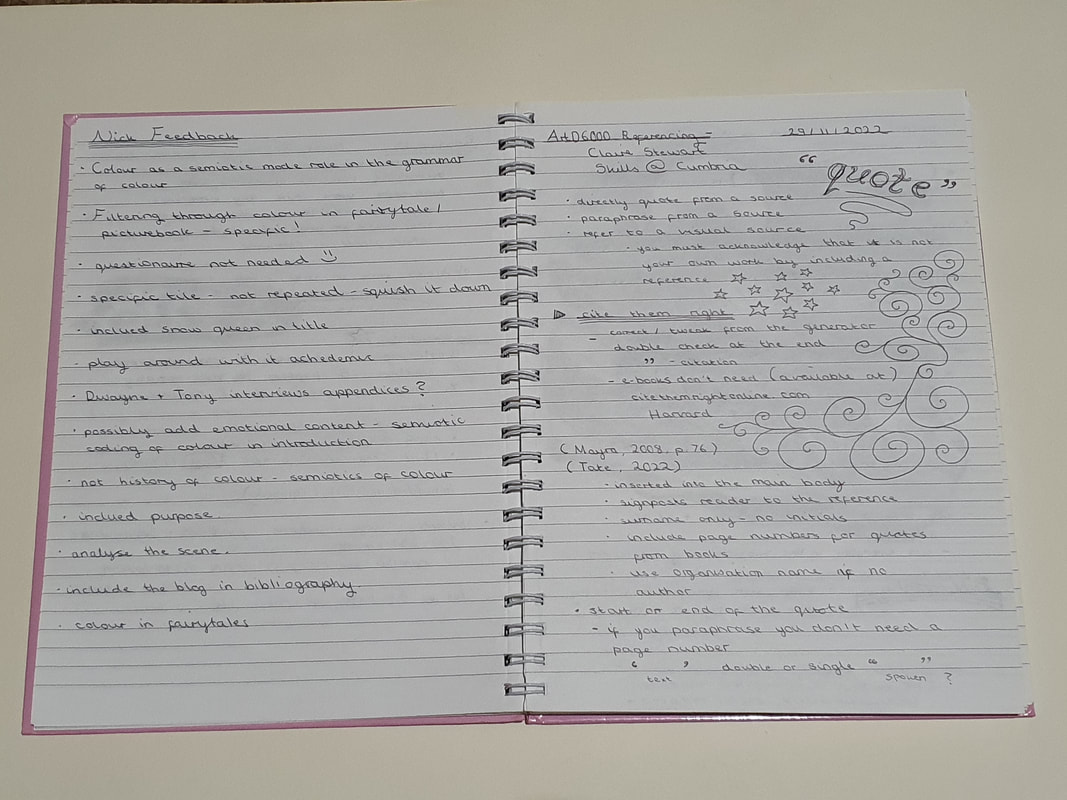 Nick Feedback
· Colour as a semiotic mode role in the grammar
of colour
· Filtering through colour in fairytale/
picturebook - specific!
· questionaure not needed
· specific tile - not repeated - squish it down
· inclued snow queen in title
- play around with it achedemic
· Dwayne + Tony interviews appendices?
· possibly add emotional content - semiotic
coding of colour in introduction
· not history of colour - semiotics of colour
· inclued purpose
· analyse the scene.
· include the blog in bibliography
· colour in fairytales
ArtD6000 Referencing - 29/11/2022
Claire Stewart
Skills @ Cumbria
“quote”
· directly quote from a source
· paraphrase from a source
· refer to a visual source
· you must acknowledge that it is not
your own work by including a
reference
cite them right
- correct/tweak from the generator
double check at the end
” - citation
- e-books don't need (available at)
citethemrightonline.com
Harvard
(Mayra, 2008, p.76)
(Tate, 2022)
· inserted into the main body
· signposts reader to the reference
· surname only - no initials
· include page numbers for quotes
from books
· use organisation name if no
author
· start or end of the quote
- if you paraphrase you don't need a
page number
‘ ’ double or single “ ”
text spoken ?